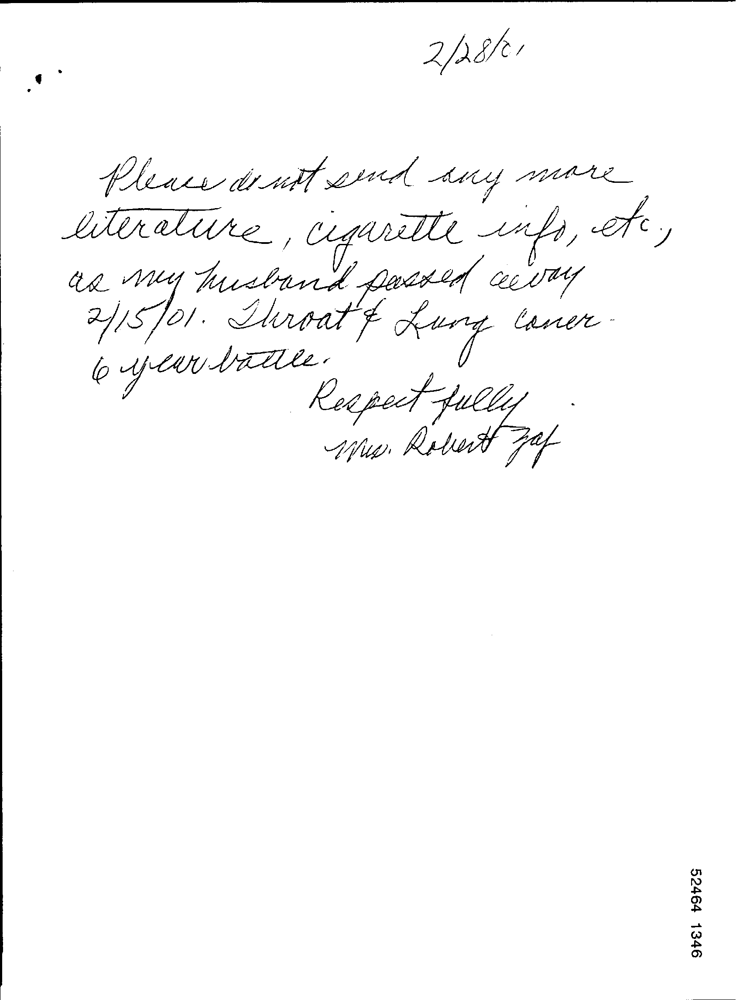 2/28/01
Please do not send any more
literature, cigarette info, etc.,
as my husband passed away
2/15/01. Throat & Lung Caner.
6 year battle.
Respectfully
Mrs. Robert Zaf
52464 1346